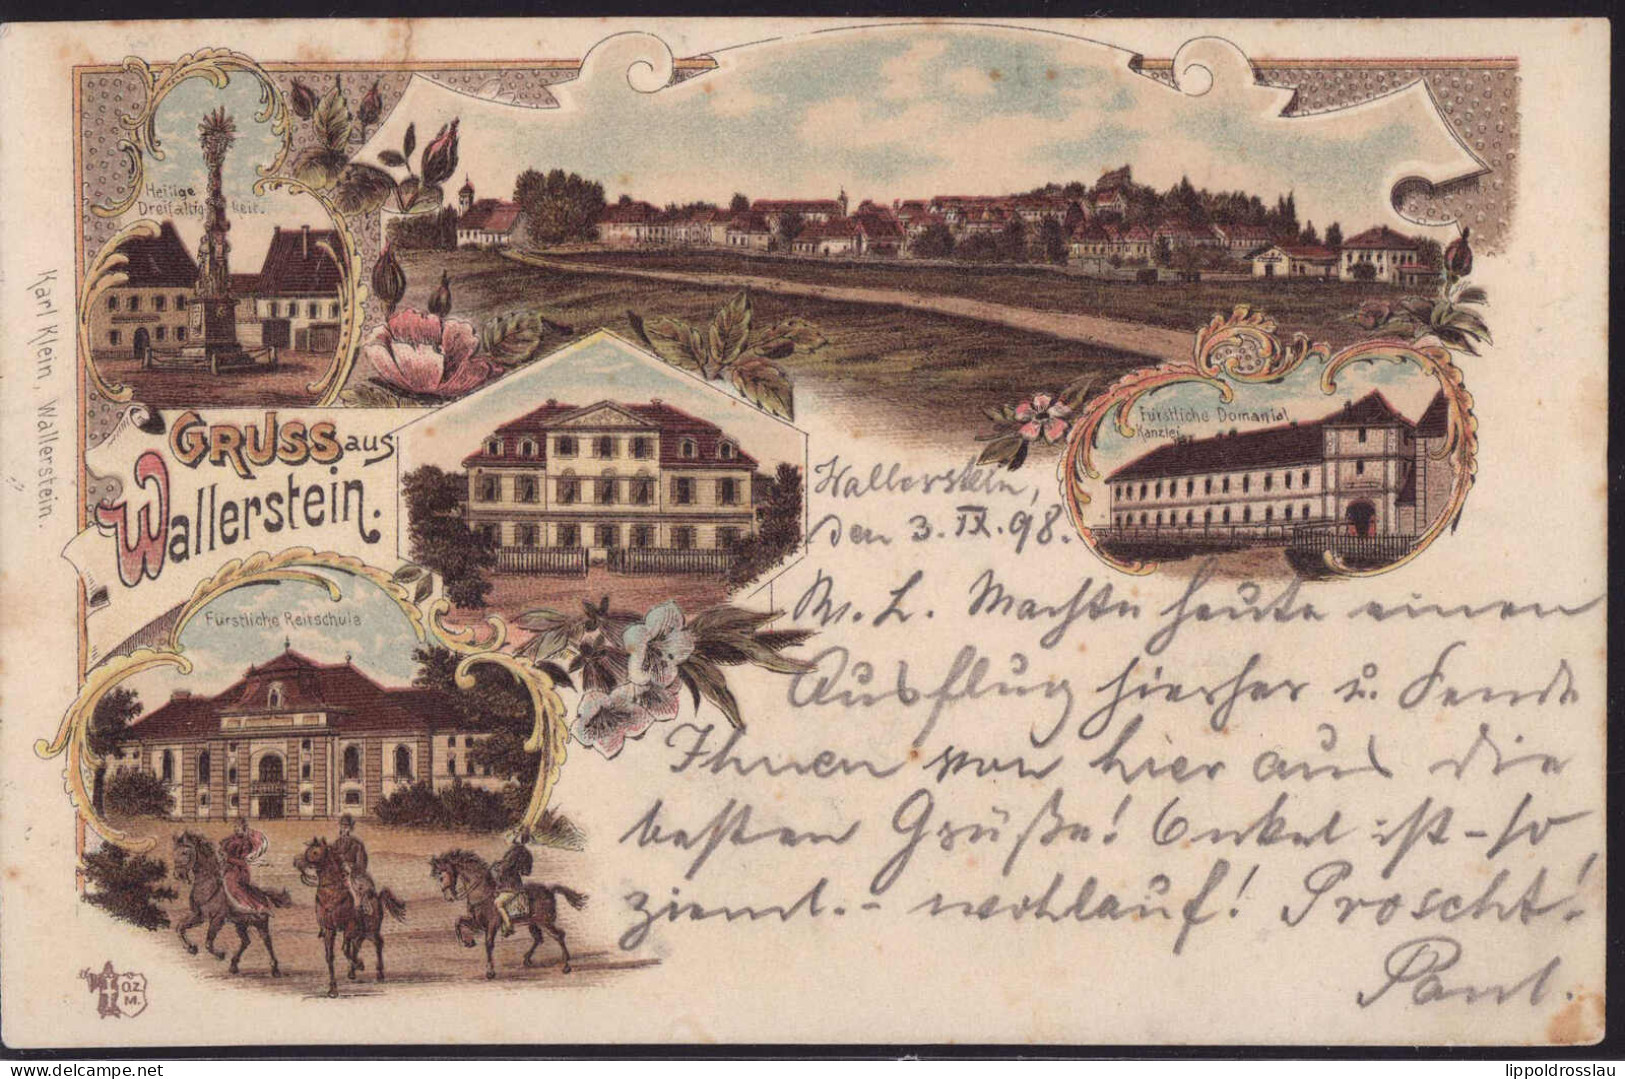 Heilige
Dreifaltig- keit.
GRUSS aus
Wallerstein.
Fürstliche Domanial
Kanzlei
Fürstliche Reitschule
Karl Klein, Wallerstein.
Wallerstein,
den 3. IX. 98.
M. L. Machte heute einen
Ausflug hierher u. sende
Ihnen von hier aus die
besten Grüße! Onkel ist – so
zieml. – wohlauf! Proscht!
Paul.
O.Z.
M.
lippoldrosslau